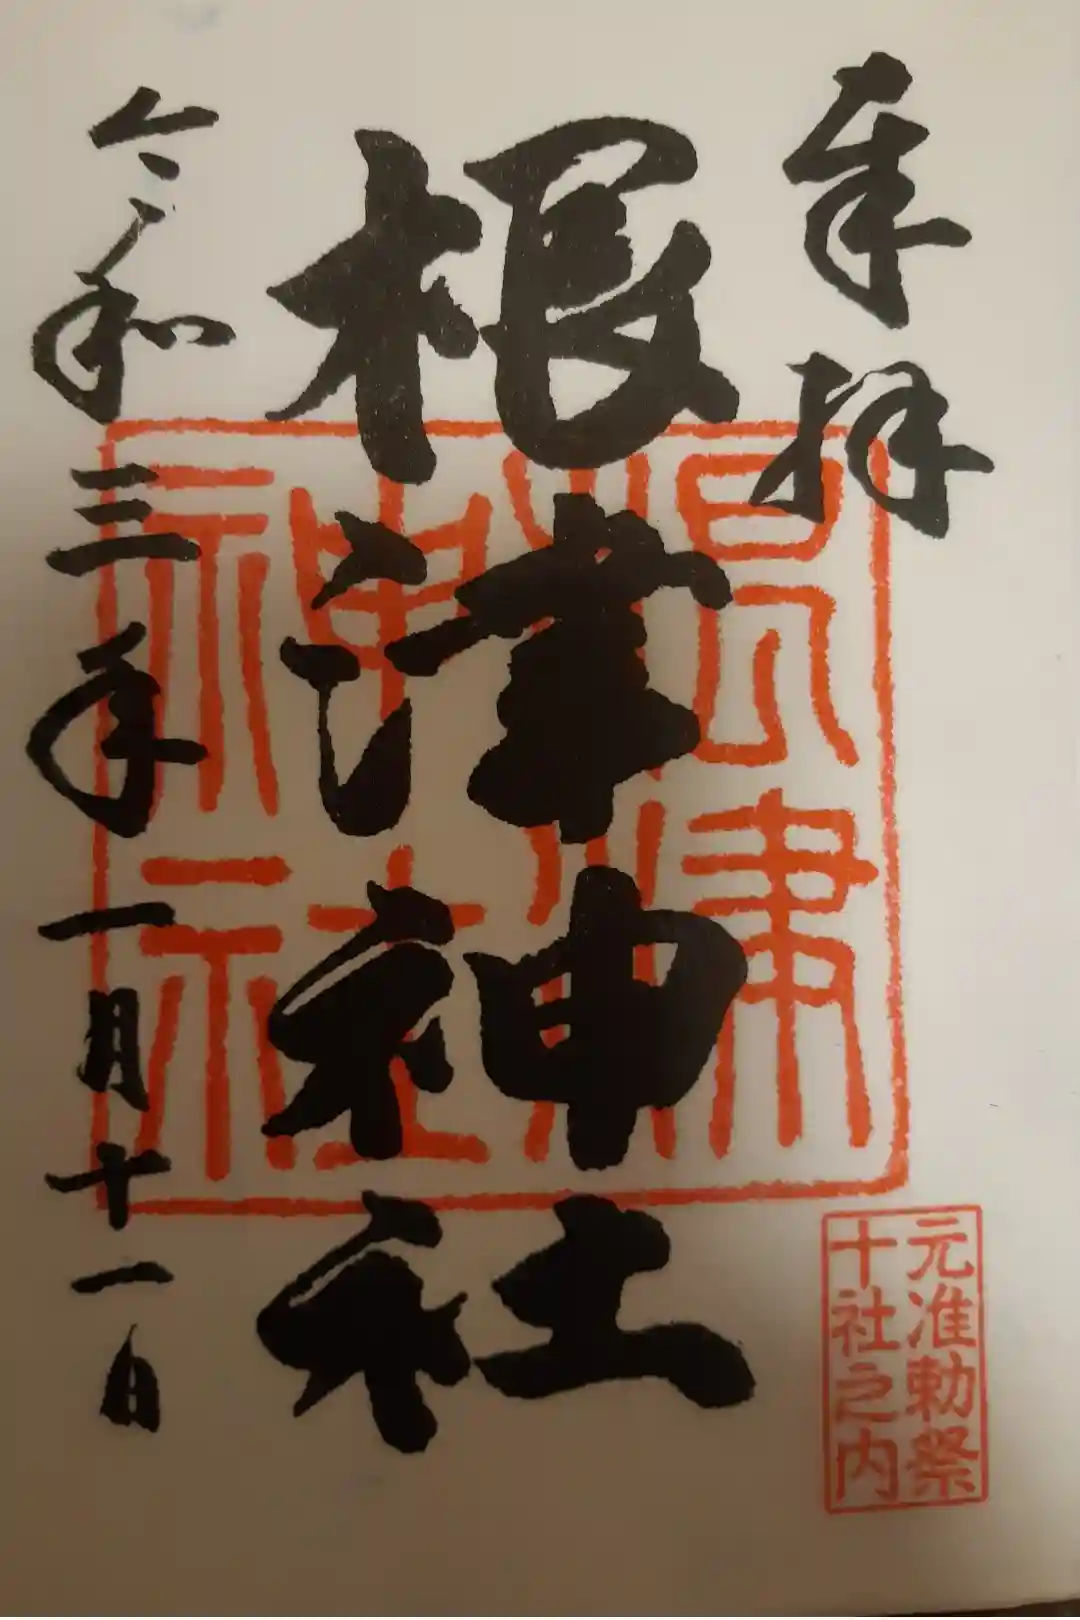 奉拝
根津神社
根津神社
元准勅祭
十社之内
令和三年一月十一日